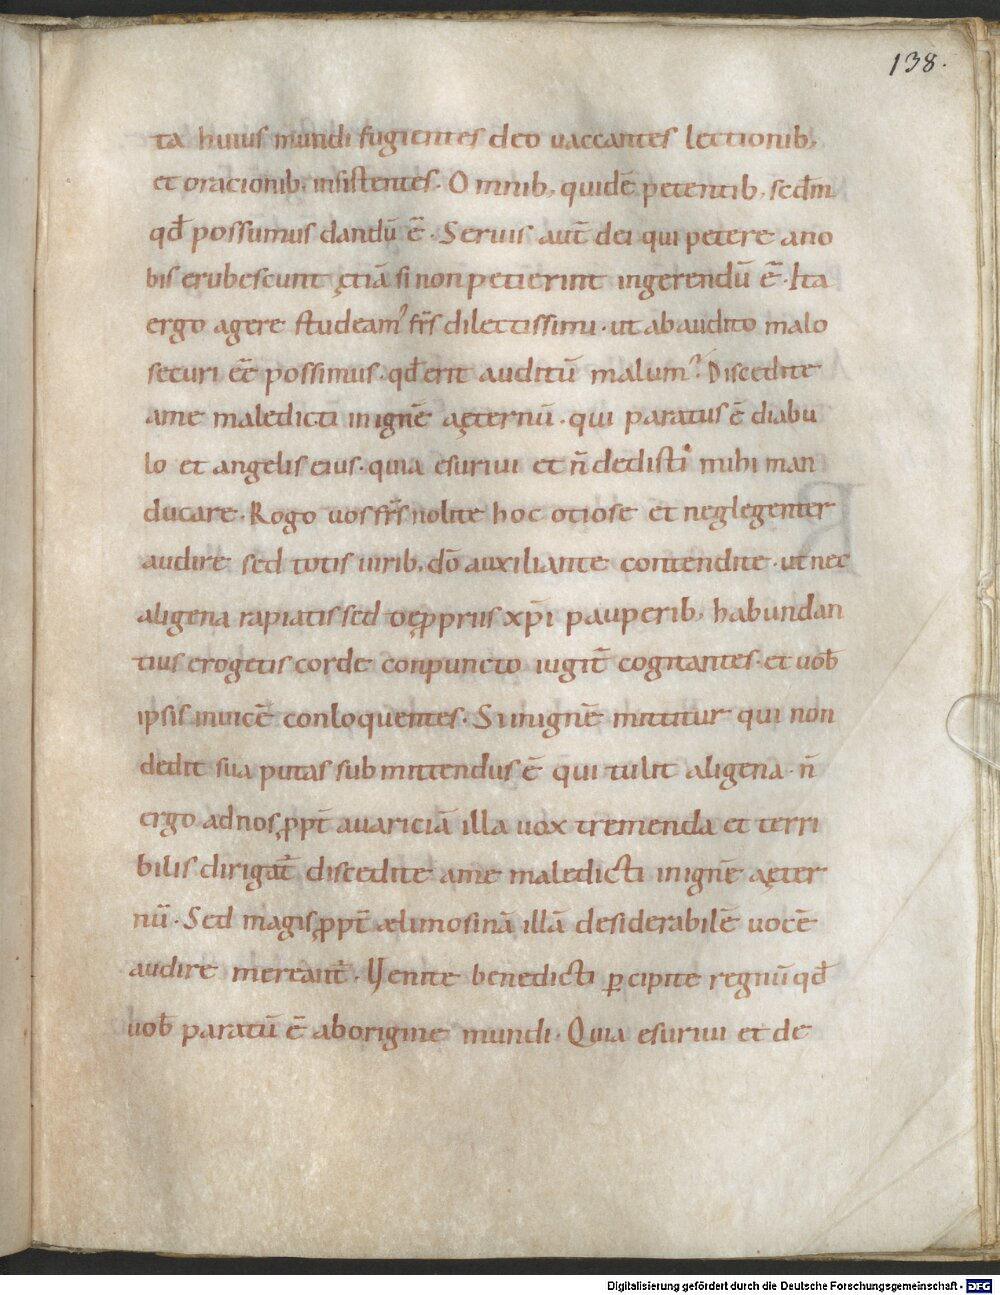 138.
ta huius mundi fugientes deo uaccantes lectionib;
et oracionib; insistentes. Omnib; quidē petentib; secdm̄
qđ possumus dandū ē. Seruis aut̄ dei qui petere ano
bis erubescunt ętiā si non petierint ingerendū ē. Ita
ergo agere studeam' fr̄s dilectissimi. ut ab audito malo
securi ēē possimus. qđ erit auditū malum? Discedite
ame maledicti inignē aęternū. qui paratus ē diabu
lo et angelis eius. quia esuriui et n̄ dedisti mihi man
ducare. Rogo uos fr̄s nolite hoc otiose et neglegenter
audire sed totis uirib; dō auxiliante contendite. ut nec
aligena rapiatis sed deꝓpriis xp̄i pauperib; habundan
tius erogetis corde conpuncto iugit̄ cogitantes. et uob̄
ipsis inuicē conloquentes. Si inignē mittitur qui non
dedit sua putas ubi mittendus ē qui tulit aligena. n̄
ergo ad nos ꝓpt̄ auariciā illa uox tremenda et terri
bilis dirigat̄ discedite ame maledicti inignē aęter
nū. Sed magis ꝓpt̄ ælimosinā illā desiderabilē uocē
audire mereant̄. Uenite benedicti ꝑcipite regnū qđ
uob̄ paratū ē aborigine mundi. Quia esuriui et de
Digitalisierung gefördert durch die Deutsche Forschungsgemeinschaft - DFG